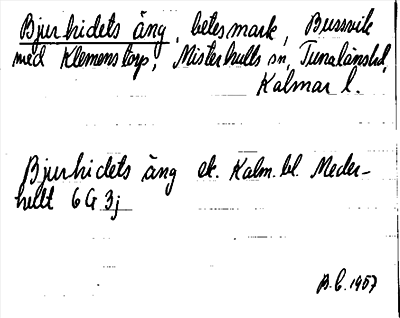 Bjurhidets äng, betesmark, Bussvik
med Klemenstorp, Misterhults sn, Tunalänshd,
Kalmar l.
Bjurhidets äng ek. Kalm. bl. Meder-
hult 6G 3j
B.L. 1957